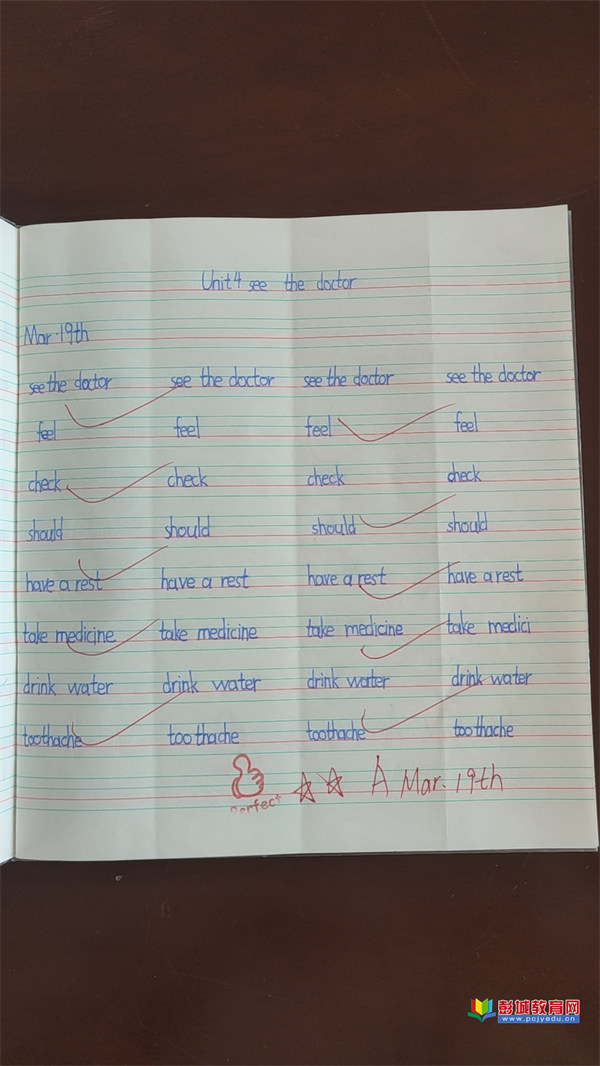 Unit 4 see the doctor
Mar. 19th
see the doctor see the doctor see the doctor see the doctor
feel feel feel feel
check check check check
should should should should
have a rest have a rest have a rest have a rest
take medicine take medicine take medicine take medici
drink water drink water drink water drink water
toothache toothache toothache toothache
A Mar. 19th
Perfect
彭城教育网
www.pcjyedu.cn